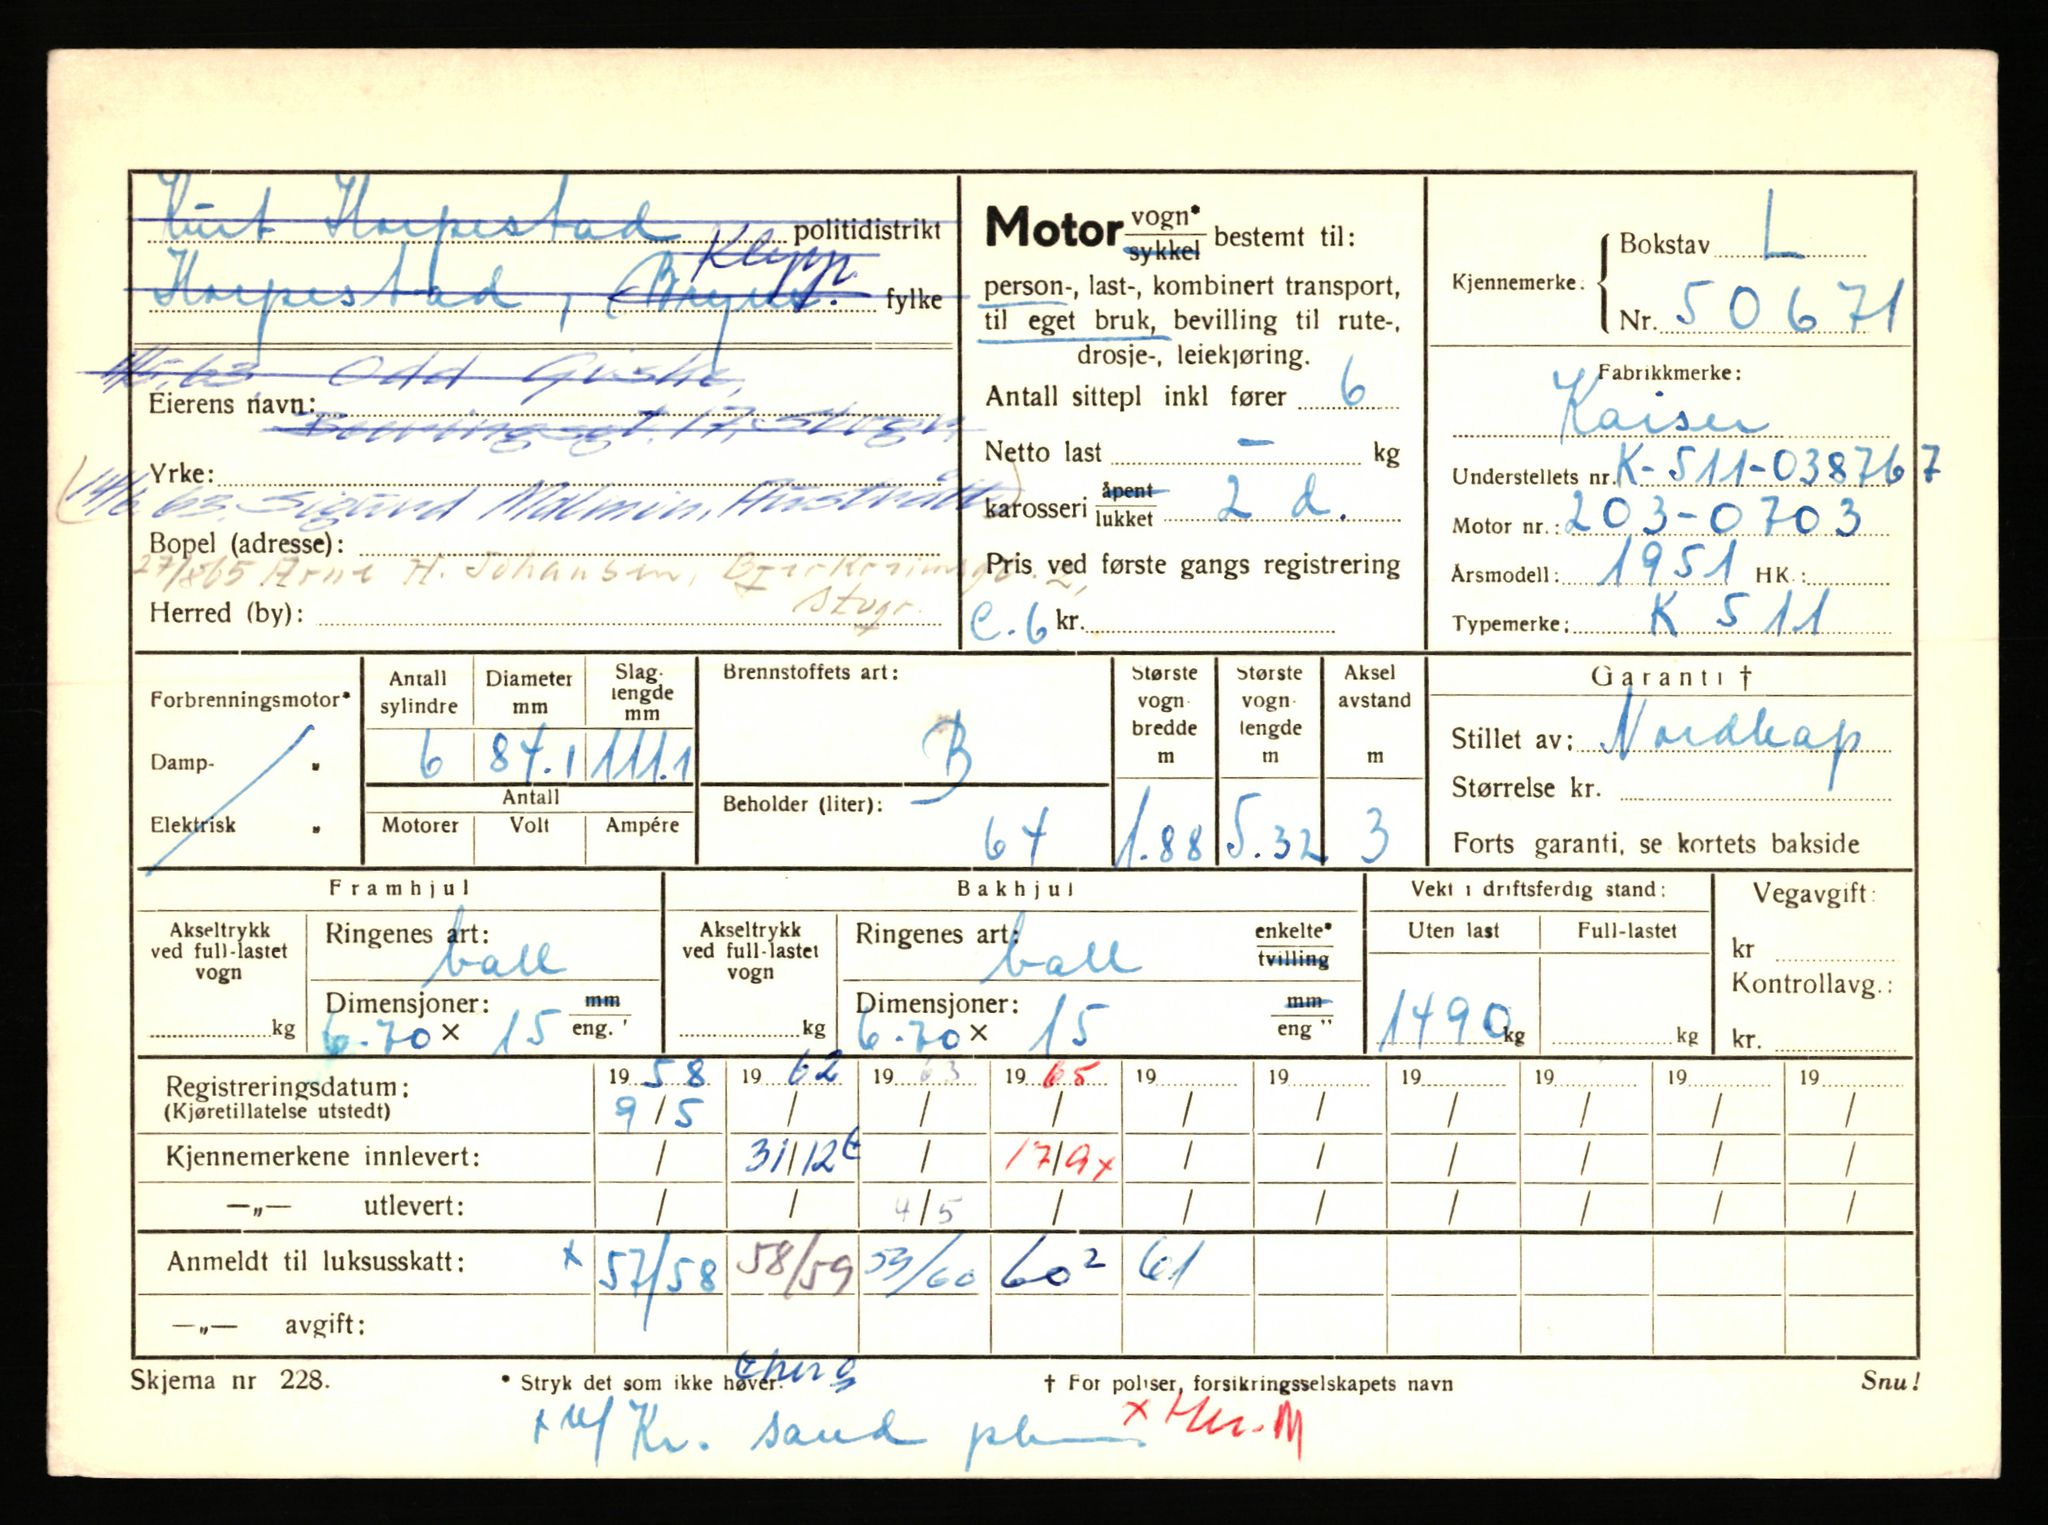 Kurt Horpestad politidistrikt
Horpestad, Bryne. Klepp. fylke
63 Odd
Eierens navn:
17,
Yrke:
14/6 63. Sigurd Malmin, Austrått
Bopel (adresse):
27/8 65 Arne H. Johansen, 2,
Stvgr.
Herred (by):
Motor vogn* sykkel bestemt til:
person-, last-, kombinert transport,
til eget bruk, bevilling til rute-,
drosje-, leiekjøring.
Antall sittepl inkl fører 6
Netto last – kg
karosseri åpent lukket 2 d.
Pris ved første gangs registrering
C.6 kr.
Kjennemerke: Bokstav L
Nr. 50671
Fabrikkmerke:
Kaiser
Understellets nr. K-511-038767
Motor nr.: 203-0703
Årsmodell: 1951 HK.:
Typemerke: K 511
Forbrenningsmotor*
Damp- "
Elektrisk "
Antall sylindre 6
Diameter mm 84.1
Slag. lengde mm 111.1
Antall
Motorer Volt Ampére
Brennstoffets art: B
Beholder (liter): 64
Største vogn bredde m 1.88
Største vogn lengde m 5.32
Aksel avstand m 3
Garanti †
Stillet av: Nordkap
Størrelse kr.
Forts garanti, se kortets bakside
Framhjul
Akseltrykk ved full-lastet vogn kg
Ringenes art: ball
Dimensjoner: 6.70 x 15 mm eng. "
Bakhjul
Akseltrykk ved full-lastet vogn kg
Ringenes art: ball enkelte* tvilling
Dimensjoner: 6.70 x 15 mm eng "
Vekt i driftsferdig stand:
Uten last 1490 kg
Full-lastet kg
Vegavgift:
kr
Kontrollavg.:
kr.
Registreringsdatum: 1958 1962 1963 1965 19 19 19 19 19 19
(Kjøretillatelse utstedt) 9/5 / / / / / / / / /
Kjennemerkene innlevert: / 31/12 / 17/9x / / / / / /
—„— utlevert: / / 4/5 / / / / / / /
Anmeldt til luksusskatt: x 57/58 58/59 59/60 60² 61
—„— avgift:
Skjema nr 228. * Stryk det som ikke høver. † For poliser, forsikringsselskapets navn Snu!
x Kr. sand
x